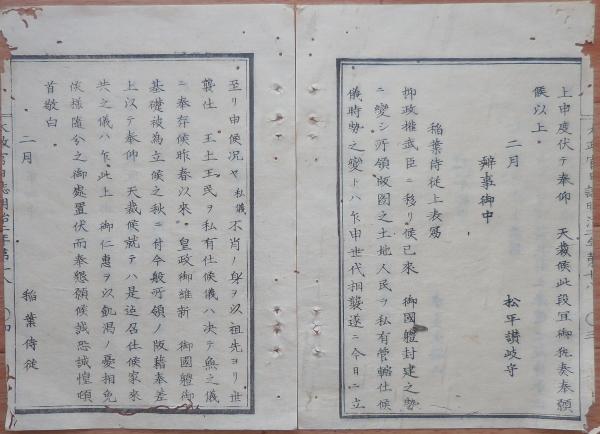 上申度伏テ奉仰　天裁候此段宜御執奏奉願
候以上
二月
松平讃岐守
辨事御中
稲葉侍従上表寫
抑政權武臣ニ移リ候已來　御國體封建之勢
ニ變シ所領版圖之土地人民ヲ私有管轄仕候
儀時勢之變トハ乍申世代相襲遂ニ今日ニ立
至リ申候況ヤ私儀不肖ノ身ヲ以祖先ヨリ世
襲仕　王土王民ヲ私有仕候儀ハ決テ無之儀
ニ奉存候昨春以來　皇政御維新　御國體御
基礎被為立候之秋ニ付今般所領ノ版籍奉差
上以テ奉仰　天裁候就テハ是迠召仕候家來
共之儀ハ乍此上　御仁惠ヲ以飢渇ノ憂相免
候様隨分之御處置伏而奉懇願候誠恐誠惶頓
首敬白
二月
稲葉侍従
太政官日誌明治二年第十八